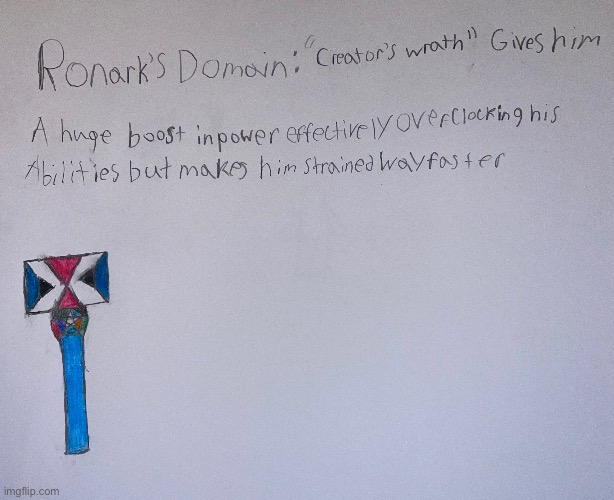 Ronark's Domain: "Creator's wrath" Gives him
A huge boost in power effectively overclocking his
Abilities but makes him strained way faster
imgflip.com